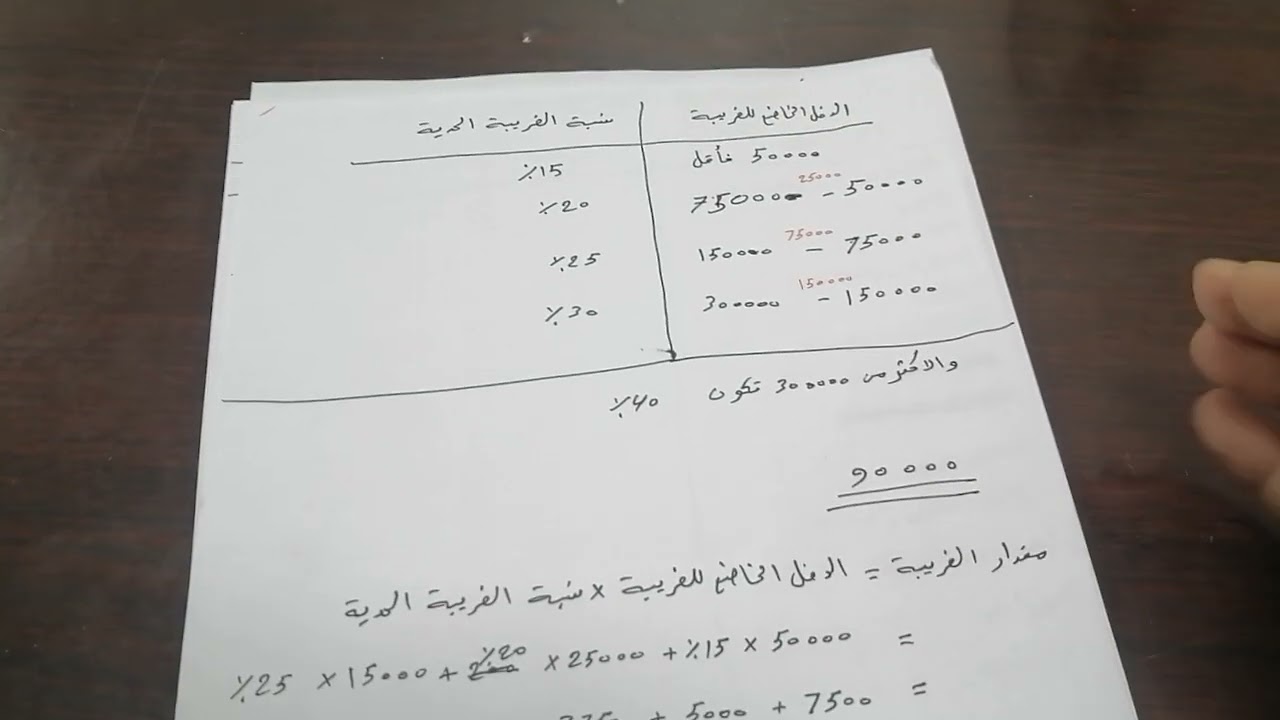 الدخل الخاضع للضريبة	نسبة الضريبة الحدية
50000 فأقل	٪15
50000 - 25000 75000	٪20
75000 - 75000 150000	٪25
150000 - 150000 300000	٪30
والاكثر من 300000 تكون ٪40
90000
مقدار الضريبة = الدخل الخاضع للضريبة × نسبة الضريبة الحدية
= 50000 × ٪15 + 25000 × ٪20 + 15000 × ٪25
= 7500 + 5000 +